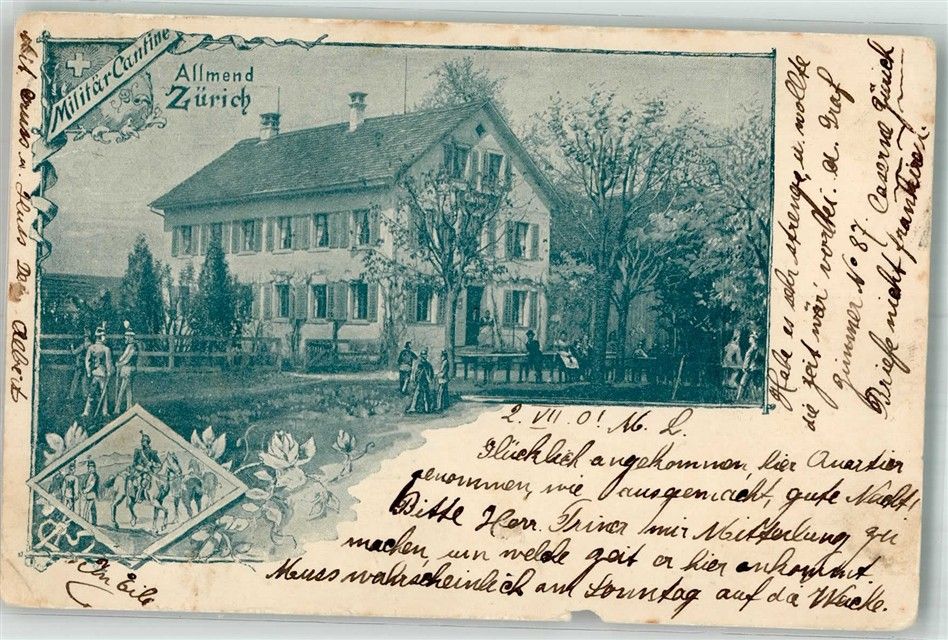 Militär Cantine
Allmend
Zürich
2. VII. 01. M. L.
Glücklich angekommen, hier Quartier
genommen, wie ausgemacht, gute Nacht!
Bitte Herr. Triner mir Mitteilung zu
machen, um welche Zeit er hier ankommt.
Muss wahrscheinlich am Sonntag auf die Wache.
In Eile
Habe es sehr strenge, u. wollte
die Zeit wär' vorbei. d. Graf
Zimmer No 87. Caserne Zürich
Briefe nicht frankiren
Mit Gruss u. Kuss Dein Albert